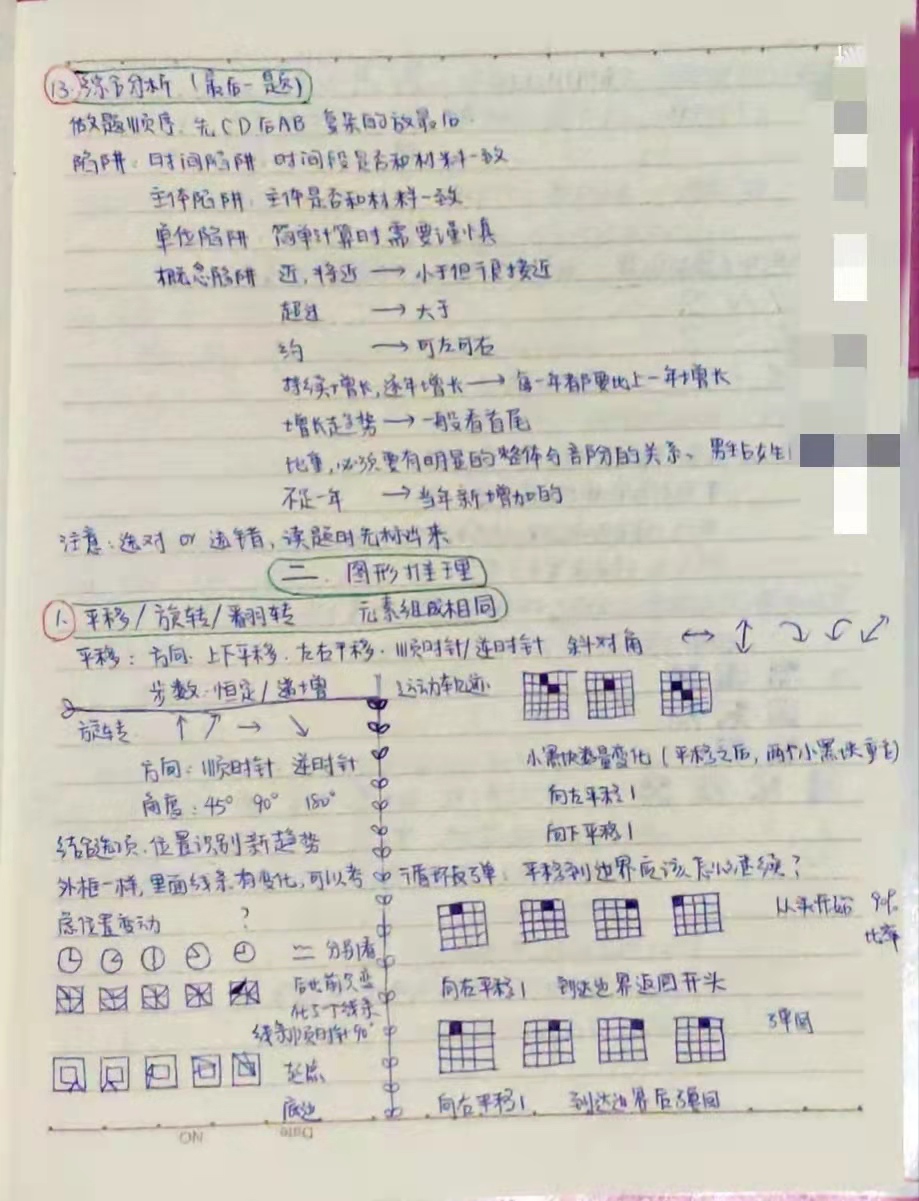 13. 综合分析（最后一题）
做题顺序：先CD后AB 复杂的放最后
陷阱：时间陷阱 时间段是否和材料一致
主体陷阱：主体是否和材料一致
单位陷阱 简单计算时需要谨慎
概念陷阱：近，将近 → 小于但很接近
超过 → 大于
约 → 可左可右
持续增长，逐年增长 → 每一年都要比上一年增长
增长趋势 → 一般看首尾
比重，必须要有明显的整体与部分的关系、男生占女生
不足一年 → 当年新增加的
注意：选对 or 选错，读题时先标出来
二. 图形推理
1. 平移/旋转/翻转 元素组成相同
平移：方向：上下平移. 左右平移. 顺时针/逆时针 斜对角 ↔ ↕
步数：恒定/递增 运动轨迹
旋转 ↑ ↗ → ↘
小黑块数量变化（平移之后，两个小黑块重合）
方向：顺时针 逆时针
向右平移1
角度：45° 90° 180°
向下平移1
结合选项.位置识别新趋势
外框一样，里面线条有变化，可以考
循环反弹：平移到边界应该怎么继续？
虑位置变动 ？
从头开始 90%
比率
二 分别看
后比前只变
化了一个线条
向右平移1 到达边界返回开头
线条顺时针90°
弹回
底边
向右平移1 到达边界后弹回
Date
NO